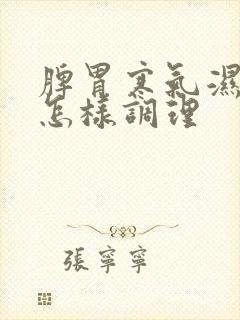 脾胃寒氣濕
怎樣調理
張寧寧